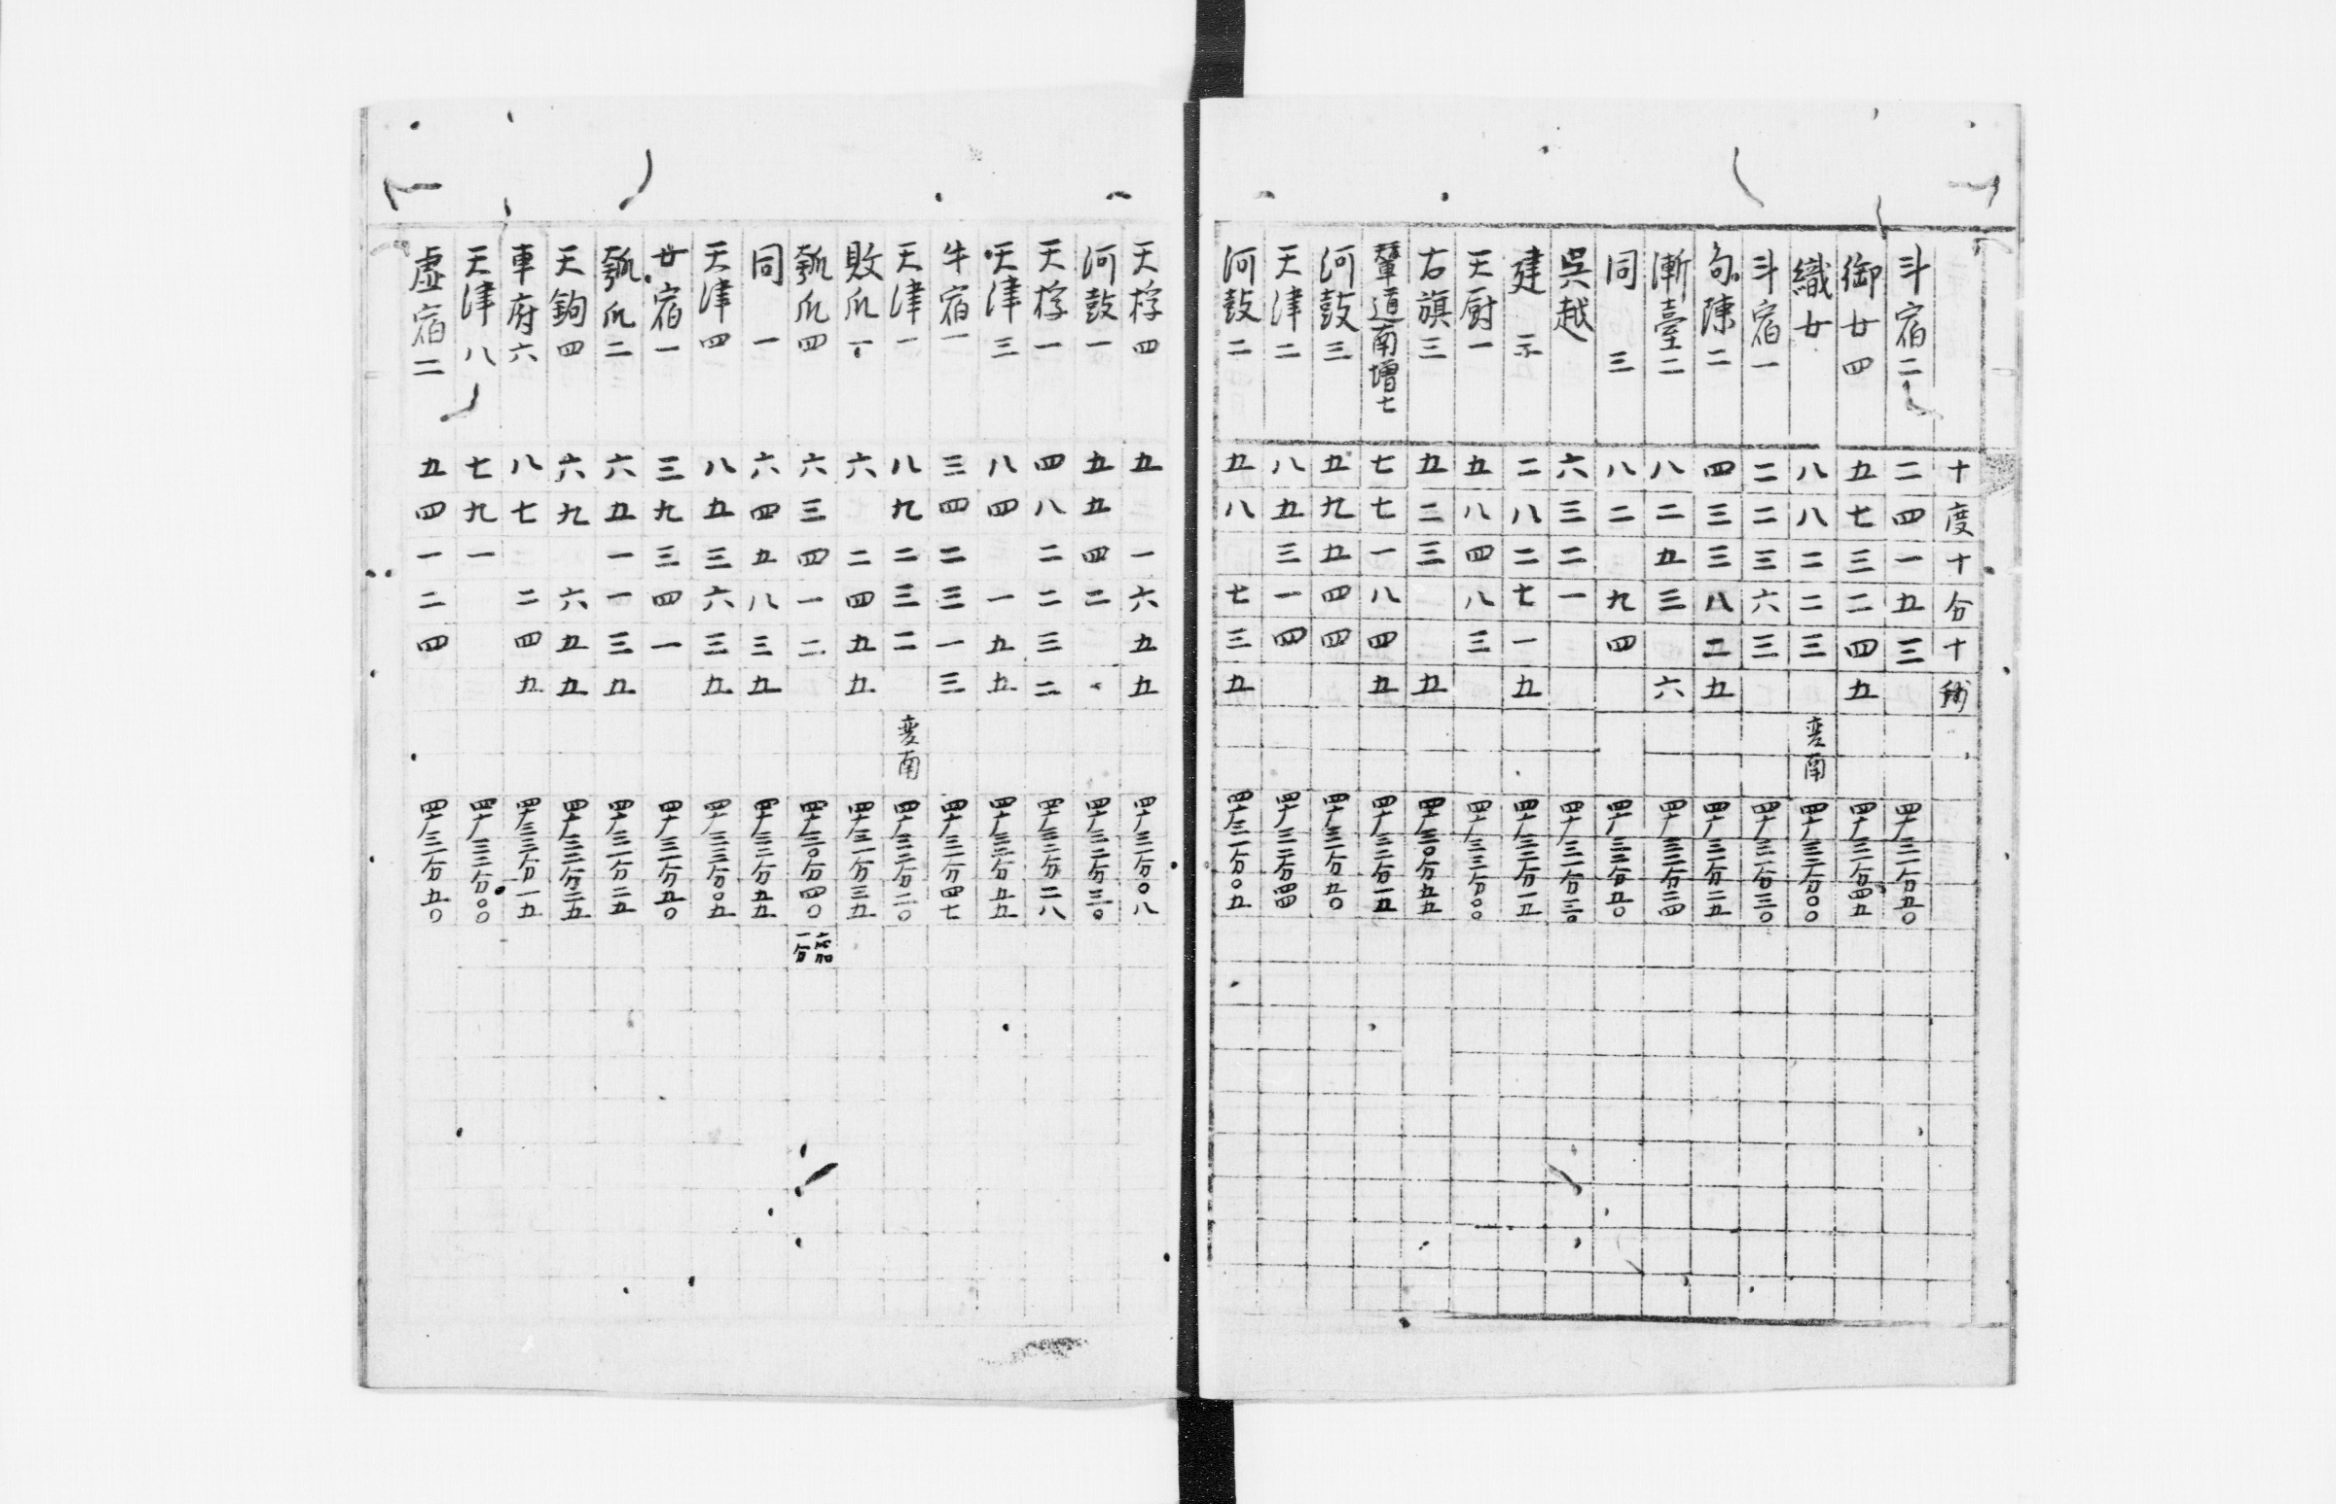 十度十分十秒
斗宿二 二四一五三 四十厂三一分五〇
御女四 五七三二四五 四十厂三一分四五
織女 八八二二三 変南 四十厂三二分〇〇
斗宿一 二二三六三 四十厂三一分三〇
勾陳二 四三三八二五 四十厂三一分二五
漸臺二 八二五三 六 四十厂三二分二四
同 三 八二 九四 四十厂三二分五〇
呉越 六三二一 四十厂三一分三〇
建 二八二七一五 四十厂三二分一五
天厨一 五八四八三 四十厂三三分〇〇
右旗三 五二三 五 四十厂三〇分五五
輦道南増七 七七一八四五 四十厂三二分一五
河鼓三 五九五四四 四十厂三一分五〇
天津二 八五三一四 四十厂三二分四四
河鼓二 五八 七三五 四十厂三一分〇五
天桴四 五 一六五五 四十厂三一分〇八
河鼓一 五五四二 四十厂三二分三〇
天桴一 四八二二三二 四十厂三二分二八
天津三 八四 一五五 四十厂三三分五五
牛宿一 三四二三一三 四十厂三一分四七
天津一 八九二三二 変南 四十厂三二分二〇
敗瓜一 六 二四五五 四十厂三一分三五
瓠瓜四 六三四一二 四十厂三〇分四〇
同 一 六四五八三五 四十厂三二分五五
天津四 八五三六三五 四十厂三三分〇五
女宿一 三九三四一 四十厂三一分五〇
瓠瓜二 六五一一三五 四十厂三一分二五
天鉤四 六九 六五五 四十厂三二分二五
車府六 八七 二四五 四十厂三三分一五
天津八 七九一 四十厂三三分〇〇
虚宿二 五四一二四 四十厂三一分五〇